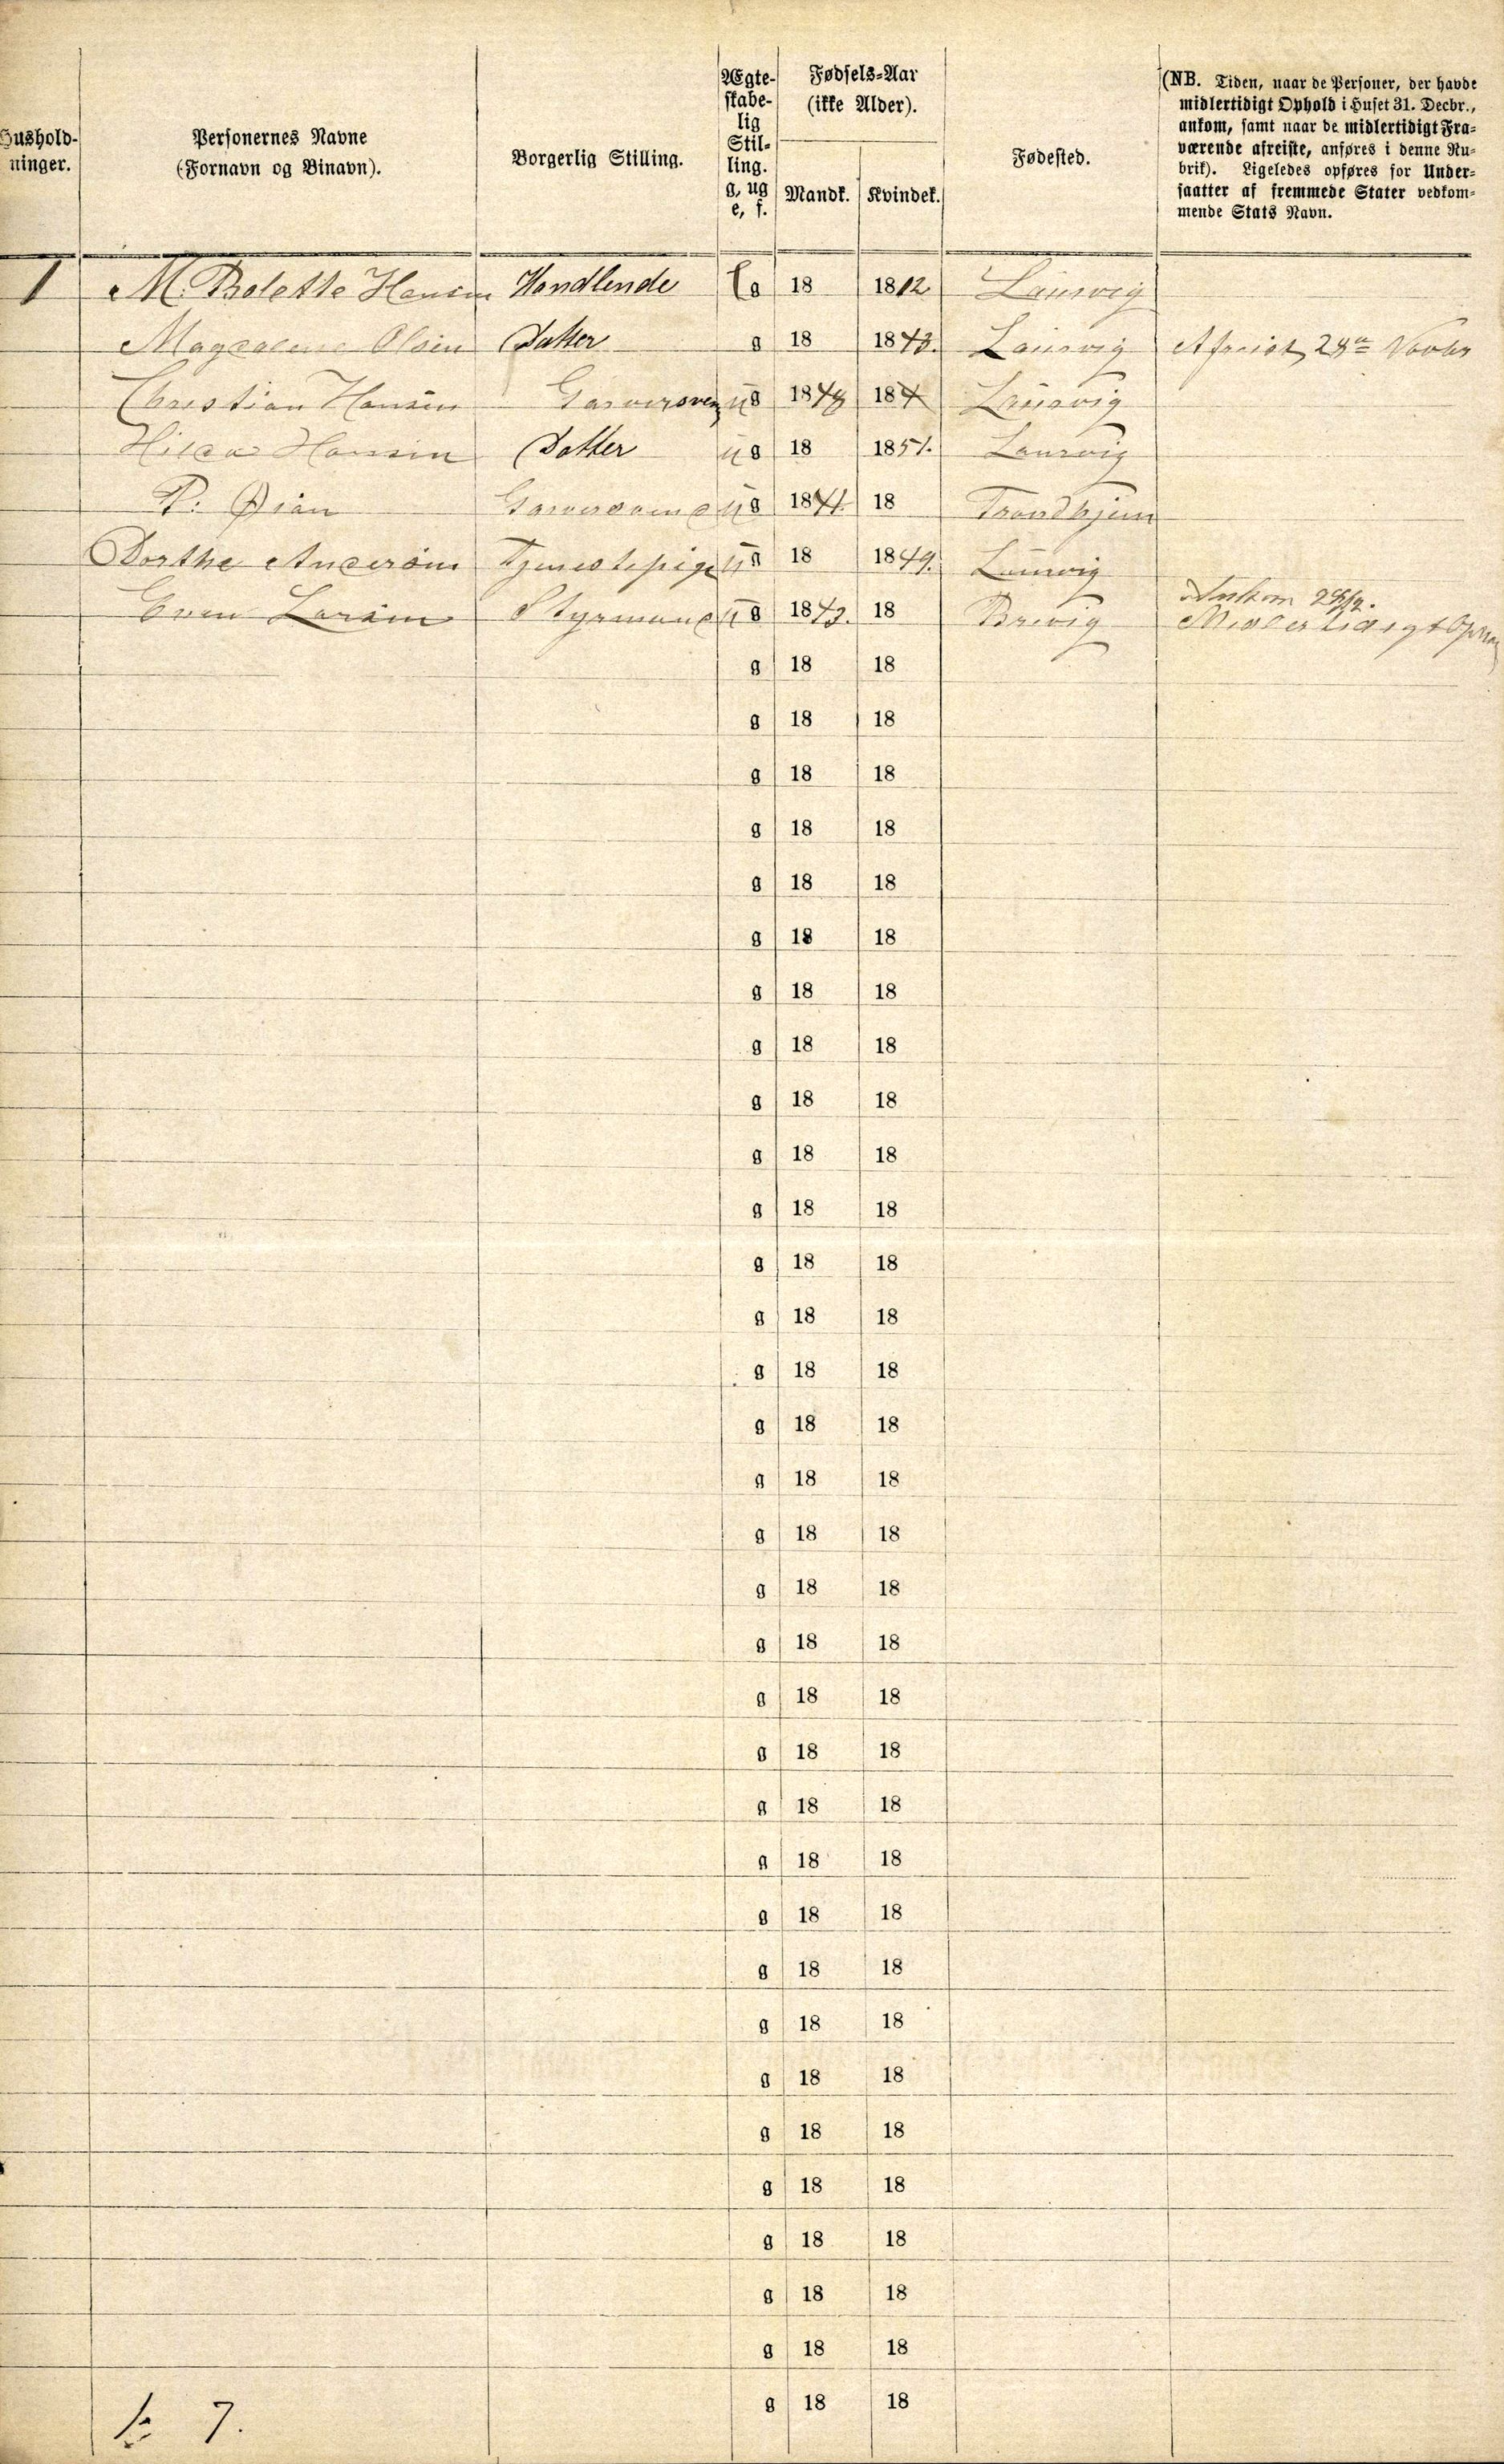 Hushold-
ninger.
Personernes Navne
(Fornavn og Binavn).
Borgerlig Stilling.
Ægte-
skabe-
lig
Stil-
ling.
g, ug
e, f.
Fødsels-Aar
(ikke Alder).
Mandk. Kvindek.
Fødested.
(NB. Tiden, naar de Personer, der havde
midlertidigt Ophold i Huset 31. Decbr.,
ankom, samt naar de midlertidigt Fra-
værende afreiste, anføres i denne Ru-
brik). Ligeledes opføres for Under-
saatter af fremmede Stater vedkom-
mende Stats Navn.
1 M. Bolette Hansen Handlende e g 18 1812 Laurvig
Magdalene Olsen Datter g 18 1843. Laurvig Afreist 28de Novbr
Christian Hansen Garversven ug 1848 184 Laurvig
Hilda Hansen Datter ug 18 1851. Laurvig
P. Øien Garversvend ug 1841. 18 Trondhjem
Dorthe Andersen Tjenestepige ug 18 1849. Laurvig
Even Larsen Styrmand ug 1843. 18 Brevig Ankom
Midlertidigt
g 18 18
g 18 18
g 18 18
g 18 18
g 18 18
g 18 18
g 18 18
g 18 18
g 18 18
g 18 18
g 18 18
g 18 18
g 18 18
g 18 18
g 18 18
g 18 18
g 18 18
g 18 18
g 18 18
g 18 18
g 18 18
g 18 18
g 18 18
g 18 18
g 18 18
g 18 18
g 18 18
g 18 18
g 18 18
g 18 18
g 18 18
g 18 18
g 18 18
7.